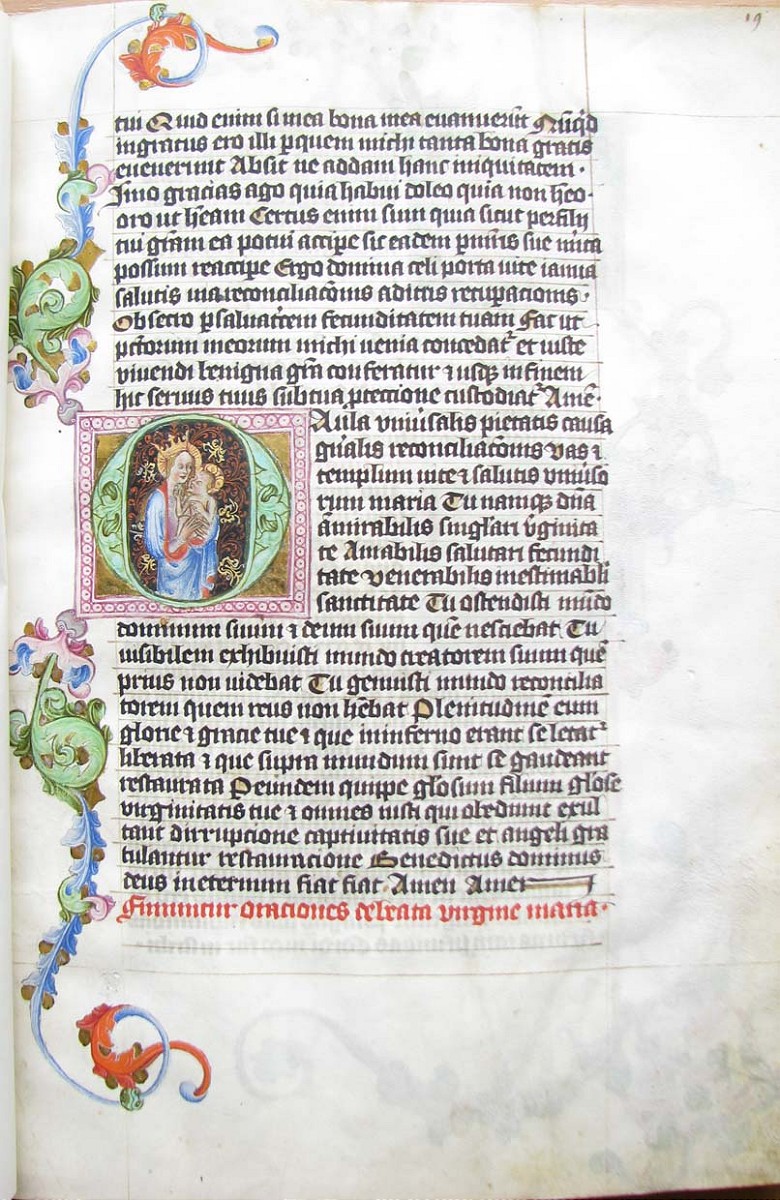 19
tui Quid enim si mea bona mea euanuerūt Nūqͥd
ingratus ero illi ꝑ quem michi tanta bona gratis
euenerunt Absit ne addam hanc iniquitatem ·
Imo gracias ago quia habui doleo quia non heo ·
oro ut heam Certus enim sum quia sicut per filij
tui grām ea potui accipe sic eadem
possum reaccipe Ergo domina celi porta uite ianua
salutis uia reconciliacōnis aditus recuꝑacionis ·
Obsecro ꝑ saluatͦem fecunditatem tuam Fac ut
pctorum meorum michi uenia concedat᷑ et iuste
viuendi benigna grā conferatur ⁊ usqꝫ in finem
hic seruus tuus sub tua ꝓtectione custodiat᷑ Amē ·
Aula vniūsalis pietatis causa
gn̄alis reconciliacōnis vas ⁊
templum uite ⁊ salutis vniūso
rum maria Tu namqꝫ dn̄a
āmirabilis singlari v̄ginita
te Amabilis salutari fecundi
tate venerabilis inestimabli
sanctitate Tu ostendisti mūdo
dominum suum ⁊ deum suum quē nesciebat Tu
uisibilem exhibuisti mundo creatorem suum quē
prius non uidebat Tu genuisti mundo reconcilia
torem quem reus non hēbat Plenitudinē eim
glorie ⁊ gracie tue ⁊ que in inferno erant se letat᷑
liberata ⁊ que supra mundum sunt se gaudeant
restaurata Per eundem quippe glosum filium glose
virginitatis tue ⁊ omnes iusti qui obedunt exul
tant dirrupcione captiuitatis sue et angeli gra
tulantur restauracione Benedictus dominus
deus in eternum fiat fiat · Amen Amen
Finiuntur oraciones de beata virgine maria ·